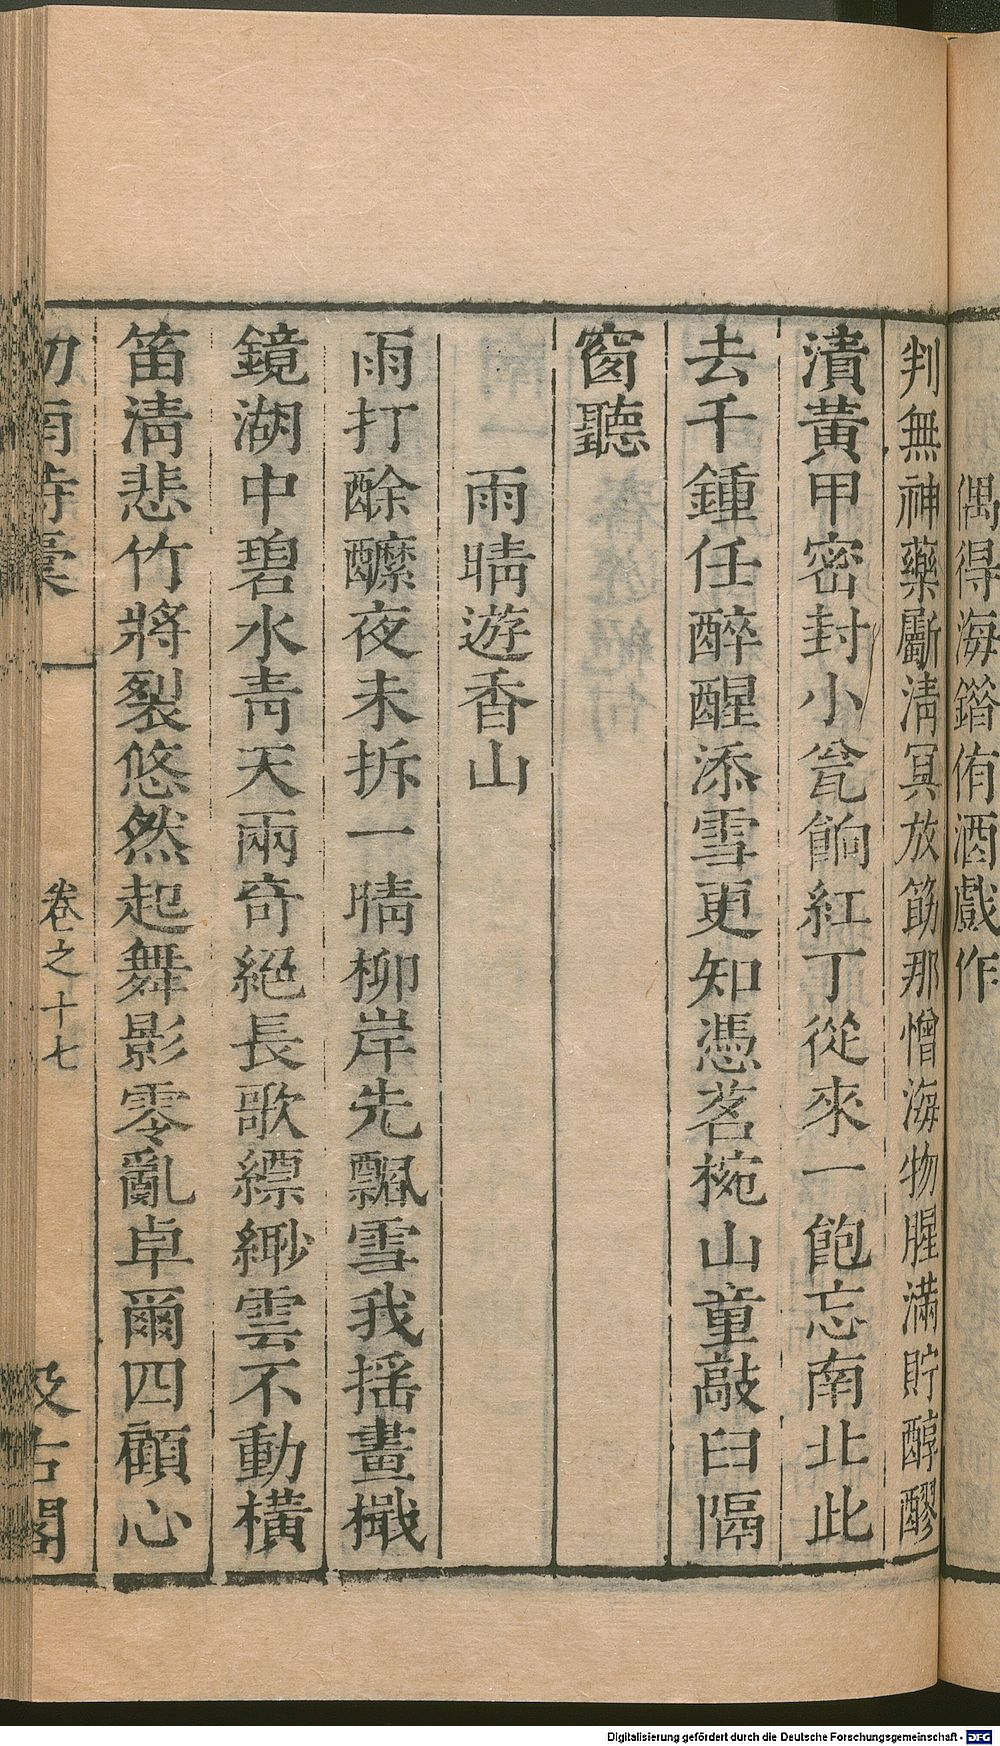 偶得海錯侑酒戲作
判無神藥斸清冥放筯那憎海物腥滿貯醇醪
漬黃甲密封小瓮餉紅丁從來一飽忘南北此
去千鍾任醉醒添雪更知憑茗椀山童敲臼隔
窗聽
雨晴遊香山
雨打酴醾夜未拆一晴柳岸先飄雪我揺畫檝
鏡湖中碧水青天兩奇絕長歌縹緲雲不動橫
笛清悲竹將裂悠然起舞影零亂卓爾四顧心
劒南詩稾
卷之十七
汲古閣
Digitalisierung gefördert durch die Deutsche Forschungsgemeinschaft - DFG